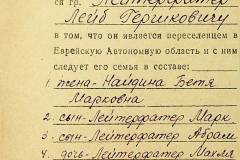 ся гр. Лейтерфатер
Лейб Гершковичу
в том, что он является переселенцем в
Еврейскую Автономную область и с ним
следует его семья в составе:
1. жена - Найдина Бетя
Марковна
2. сын - Лейтерфатер Марк
3. сын - Лейтерфатер Абрам
4. дочь - Лейтерфатер Махля